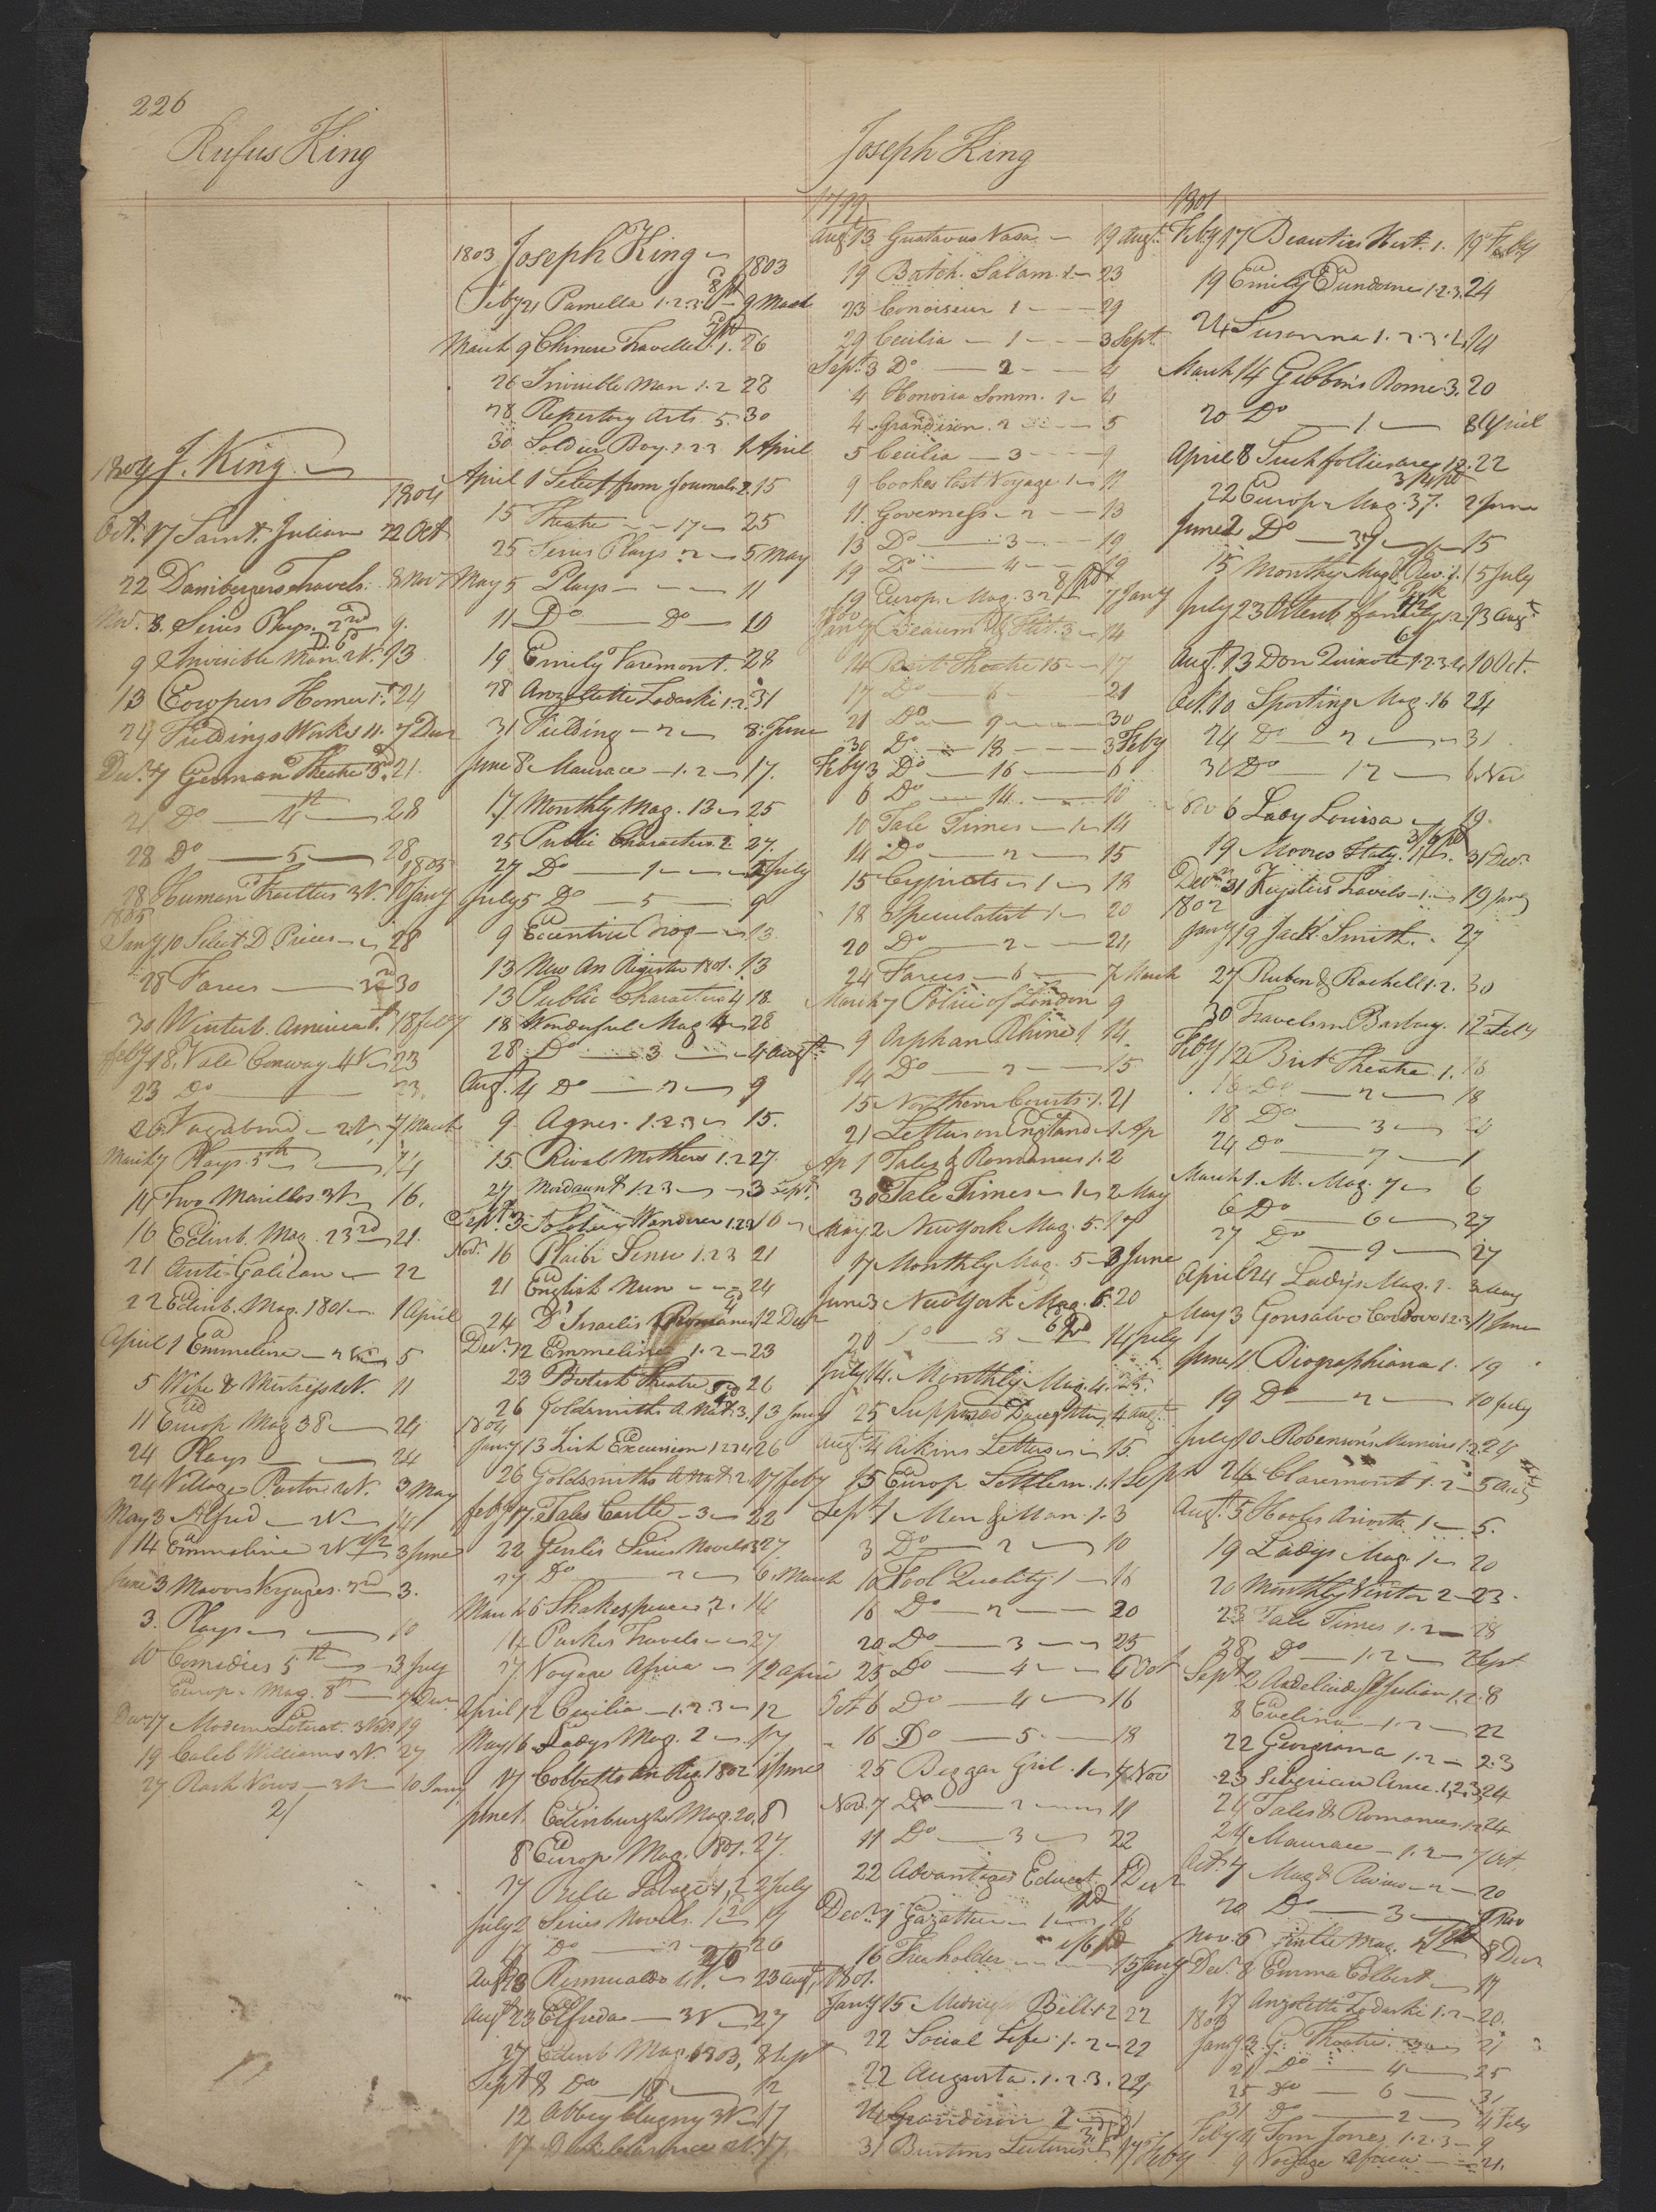 226
Rufus King
Joseph King
1804 J. King
1804
Oct. 17 Saint Julian 22 Oct
22 Dambergers Travels 8 Nov
Nov. 8. Series Plays. 2nd 9.
9 Invisible Man 2V. 13
13 Cowpers Homer 1st 24
24 Fieldings Works 11. 7 Decr
Decr. 7 German Theatre 3d 21.
21 Do 4th 28
28 Do 5 28
1805
28 Human Frailties 3V. 10 Jany
1805
Jany 10 Select D Pieces 28
28 Farces 3d 30
30 Winterb. America 18 Feby
Feby 18 Vale Conway 4V 23
23 Do 23.
26 Vagabond 2V. 7 March
March 7 Plays 5th 14
14 Two Marillos 3V 16.
16 Edinb. Mag. 23rd 21.
21 Anti-Galican 22
22 Edinb. Mag. 1801 1 April
April 1 Emmeline 5
5 Wife & Mistress 2V. 11
11 Europ Mag 38 24
24 Plays 24
24 Village Pastor 2V. 3 May
May 3 Alfred 2V 14
14 Emmeline 2V 3 June
June 3 Mavors Voyages. 2nd 3.
3. Plays 10
10 Comedies 5th 3 July
Europ. Mag. 8th 7 Decr
Decr 17 Modern Literat. 3 Vols 19
19 Caleb Williams 2V. 27
27 Rash Vows 3V 10 Jany
21
1803 Joseph King
1803
Feby 21 Pamella 1.2.3. 9 March
March 9 Chinese Traveller. 1. 26
26 Invisible Man 1.2 28
28 Repertory Arts 5. 30
30 Soldier Boy. 1 2 3 1 April
April 1 Select from Journals 2. 15
15 Theatre 17 25
25 Series Plays 2 5 May
May 5 Plays 11
11 Do Do 19
19 Emily Varemont. 28
28 Anzoletti Ladoski 1.2. 31
31 Fielding 2 8. June
June 8 Maurace 1.2 17.
17 Monthly Mag. 13 25
25 Public Characters 2 27.
27 Do 1 5 July
July 5 Do 5 9
9 Eccentric Biog 13
13 New An Register 1801. 13
13 Public Characters 4 18
18 Wonderful Mag 4 28
28 Do 3 4 Augt
Augt. 4 Do 2 9
9 Agnes. 1.2.3 15.
15. Rival Mothers 1.2 27.
27 Mordaunt 1 2 3 3 Sept.
Sept. 3 Solitary Wanderer 1.2.3 16
Novr. 16 Plaibi Senu 1.2 3 21
21 English Nun 24
24 D'Israelis Romances 12 Decr
Decr. 12 Emmeline 1.2 23
23 British Theatre 26
26 Goldsmiths A. Nat. 3. 13 Jany
1804
Jany 13 Irish Excursion 1 2 3 4 26
26 Goldsmiths A Nat. 2. 17 Feby
Feby 17 Tales Castle 3 22
22 Genlis Series Novels 27
27 Do 2 6. March
March 6 Shakespeare, 2. 14
14 Parkes Travels 27
27 Voyage Africa 12 April
April 12 Cecilia 1.2.3 12
May 16 Ladys Mag. 2 17
17 Cobbetts An Reg. 1802 1 June
June 1. Edinburgh Mag. 20. 8
8 Europ Mag. 1801. 27.
27 Rosa 1, 2 2 July
July 2 Series Novels. 1.2 17
17 Do 2 26
Augt 13 Romualdo 2V. 23 Augt.
Augt 23 Elfrida 3V 27
27 Edinb Mag. 1803, 8 Sept
Sept 8 Do 18 12
12 Abbey Clugny 3V 17
17 Duke Clarence 2V. 17.
1799
Augt 13 Gustavus Vasa 19 Augt
19 Batch. Salam. 1 23
23 Conoiseur 1 29
29 Cecilia 1 3 Sept.
Sept. 3 Do 2 4
4 Honoria Somm. 1 4
4 Grandison. 2 5
5 Cecilia 3 9
9 Cookes last Voyage 1 11
11. Governess 2 13
13 Do 3 19
19 Do 4 19
19 Europ. Mag. 32 7 Jany
Jany 7 Beaum & Flet. 3 14
14 Brit. Theatre 15 17
17 Do 6 21
21 Do 9 30
30 Do 18 3 Feby
Feby 3 Do 16 6
6 Do 14. 10
10 Tale Times 1 14
14 Do 2 15
15 Cypriots 1 18
18 Speculatist 1 20
20 Do 2 24
24 Farces 6 7 March
March 7 Police of London 9
9 Orphan Rhine 1 14.
14 Do 2 15
15 Northern Courts. 1. 21
21 Letters on England 1 Ap
Ap 1 Tales & Romances 1. 2
30 Tale Times 1 2 May
May 2 New York Mag. 5. 17
17 Monthly Mag. 5 3 June
June 3 New York Mag. 6. 20
20 Do 8 14 July
July 14. Monthly Mag. 4. 25.
25 Supposed Daughter, 4 Augt.
Augt. 4 Aikins Letters 15.
15 Europ Settlem. 1. 1 Sept
Sept 1 Men & Man 1. 3
3 Do 2 10
10 Fool Quality 1 16
16 Do 2 20
20 Do 3 25
25 Do 4 6 Oct
Oct 6 Do 4 16
16 Do 5. 18
25 Beggar Girl. 1 7 Nov
Nov. 7 Do 2 11
11 Do 3 22
22 Advantages Educat. 1 Decr
Decr 1 Gazatteer 1 16
16 Freeholder 15 Jany
1801.
Jany 15 Midnight Bell 1.2 22
22 Social Life. 1. 2 22
22 Augusta. 1. 2. 3. 24
24 Grandison 2 31
31 Burtons Lectures 17 Feby
1801
Feby 17 Beauties Hist. 1. 19 Feby
19 Emily Dundorne 1.2.3. 24
24 Susanna 1. 2. 3. 4. 14
March 14 Gibbins Rome. 3. 20
20 Do 1. 8 April
April 8 Such follies are 1.2. 22
22 Europ. Mag. 37. 2 June
June 2 Do 37 15
15 Monthly Mag. & Rev. 1. 15 July
July 23 Altenb family 1.2. 13 Augt
Augt. 13 Don Quixote 1.2.3.4 10 Oct.
Oct. 10 Sporting Mag. 16 24
24 Do 2 31
31 Do 12 6. Nov
Nov 6 Lady Louisa 19.
19 Moores Italy. 1. 31 Decr
Decr. 31 Keysters Travels 1. 19 Jany
1802
Jany 19 Jack Smith. 27
27 Ruben & Rachell 1.2. 30
30 Travels in Barbary. 12 Feby
Feby 12 Brit Theatre. 1. 16
16 Do 2 18
18 Do 3 24
24 Do 7 1
March 1. M. Mag. 7 6
6 Do 6 27
27 Do 9 27
April 24 Lady's Mag. 1. 3 May
May 3 Gonsalvo Cordova 1.2.3. 11 June
June 11 Biographiana 1. 19
19 Do 2 10 July
July 10 Robinson's Memoirs 1.2. 24
24 Claremont 1. 2 5 Aug
Augt. 5 Hooles Ariosto 1 5.
19 Ladys Mag. 1 20
20 Monthly Visitor 2 23.
23 Tale Times 1. 2 28
28 Do 1. 2 2 Sept
Sept 2 Andelinde St Julian 1.2. 8
8 Evelina 1. 2 22
22 Georgiana 1. 2 23
23 Siberian Anec. 1,2,3, 24
24 Tales & Romances. 1.2 24
24 Maurace 1. 2 7 Oct.
Oct. 7 Mag & Review 2 20
20 Do 3 6 Nov
Nov. 6 Mag. 8 Decr
Decr. 8 Emma Colbert 17
17 Anzoletti Ladoski 1.2 20.
1803
Jany 3. G. Theatre. 3 21
21 Do 4 25
25 Do 6 31
31 Do 2 4 Feby
Feby 4 Tom Jones 1. 2. 3 9
9 Voyage Africa 21.